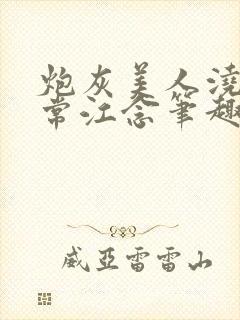 炮灰美人浇
常江念笔趣
威亚雷雷山